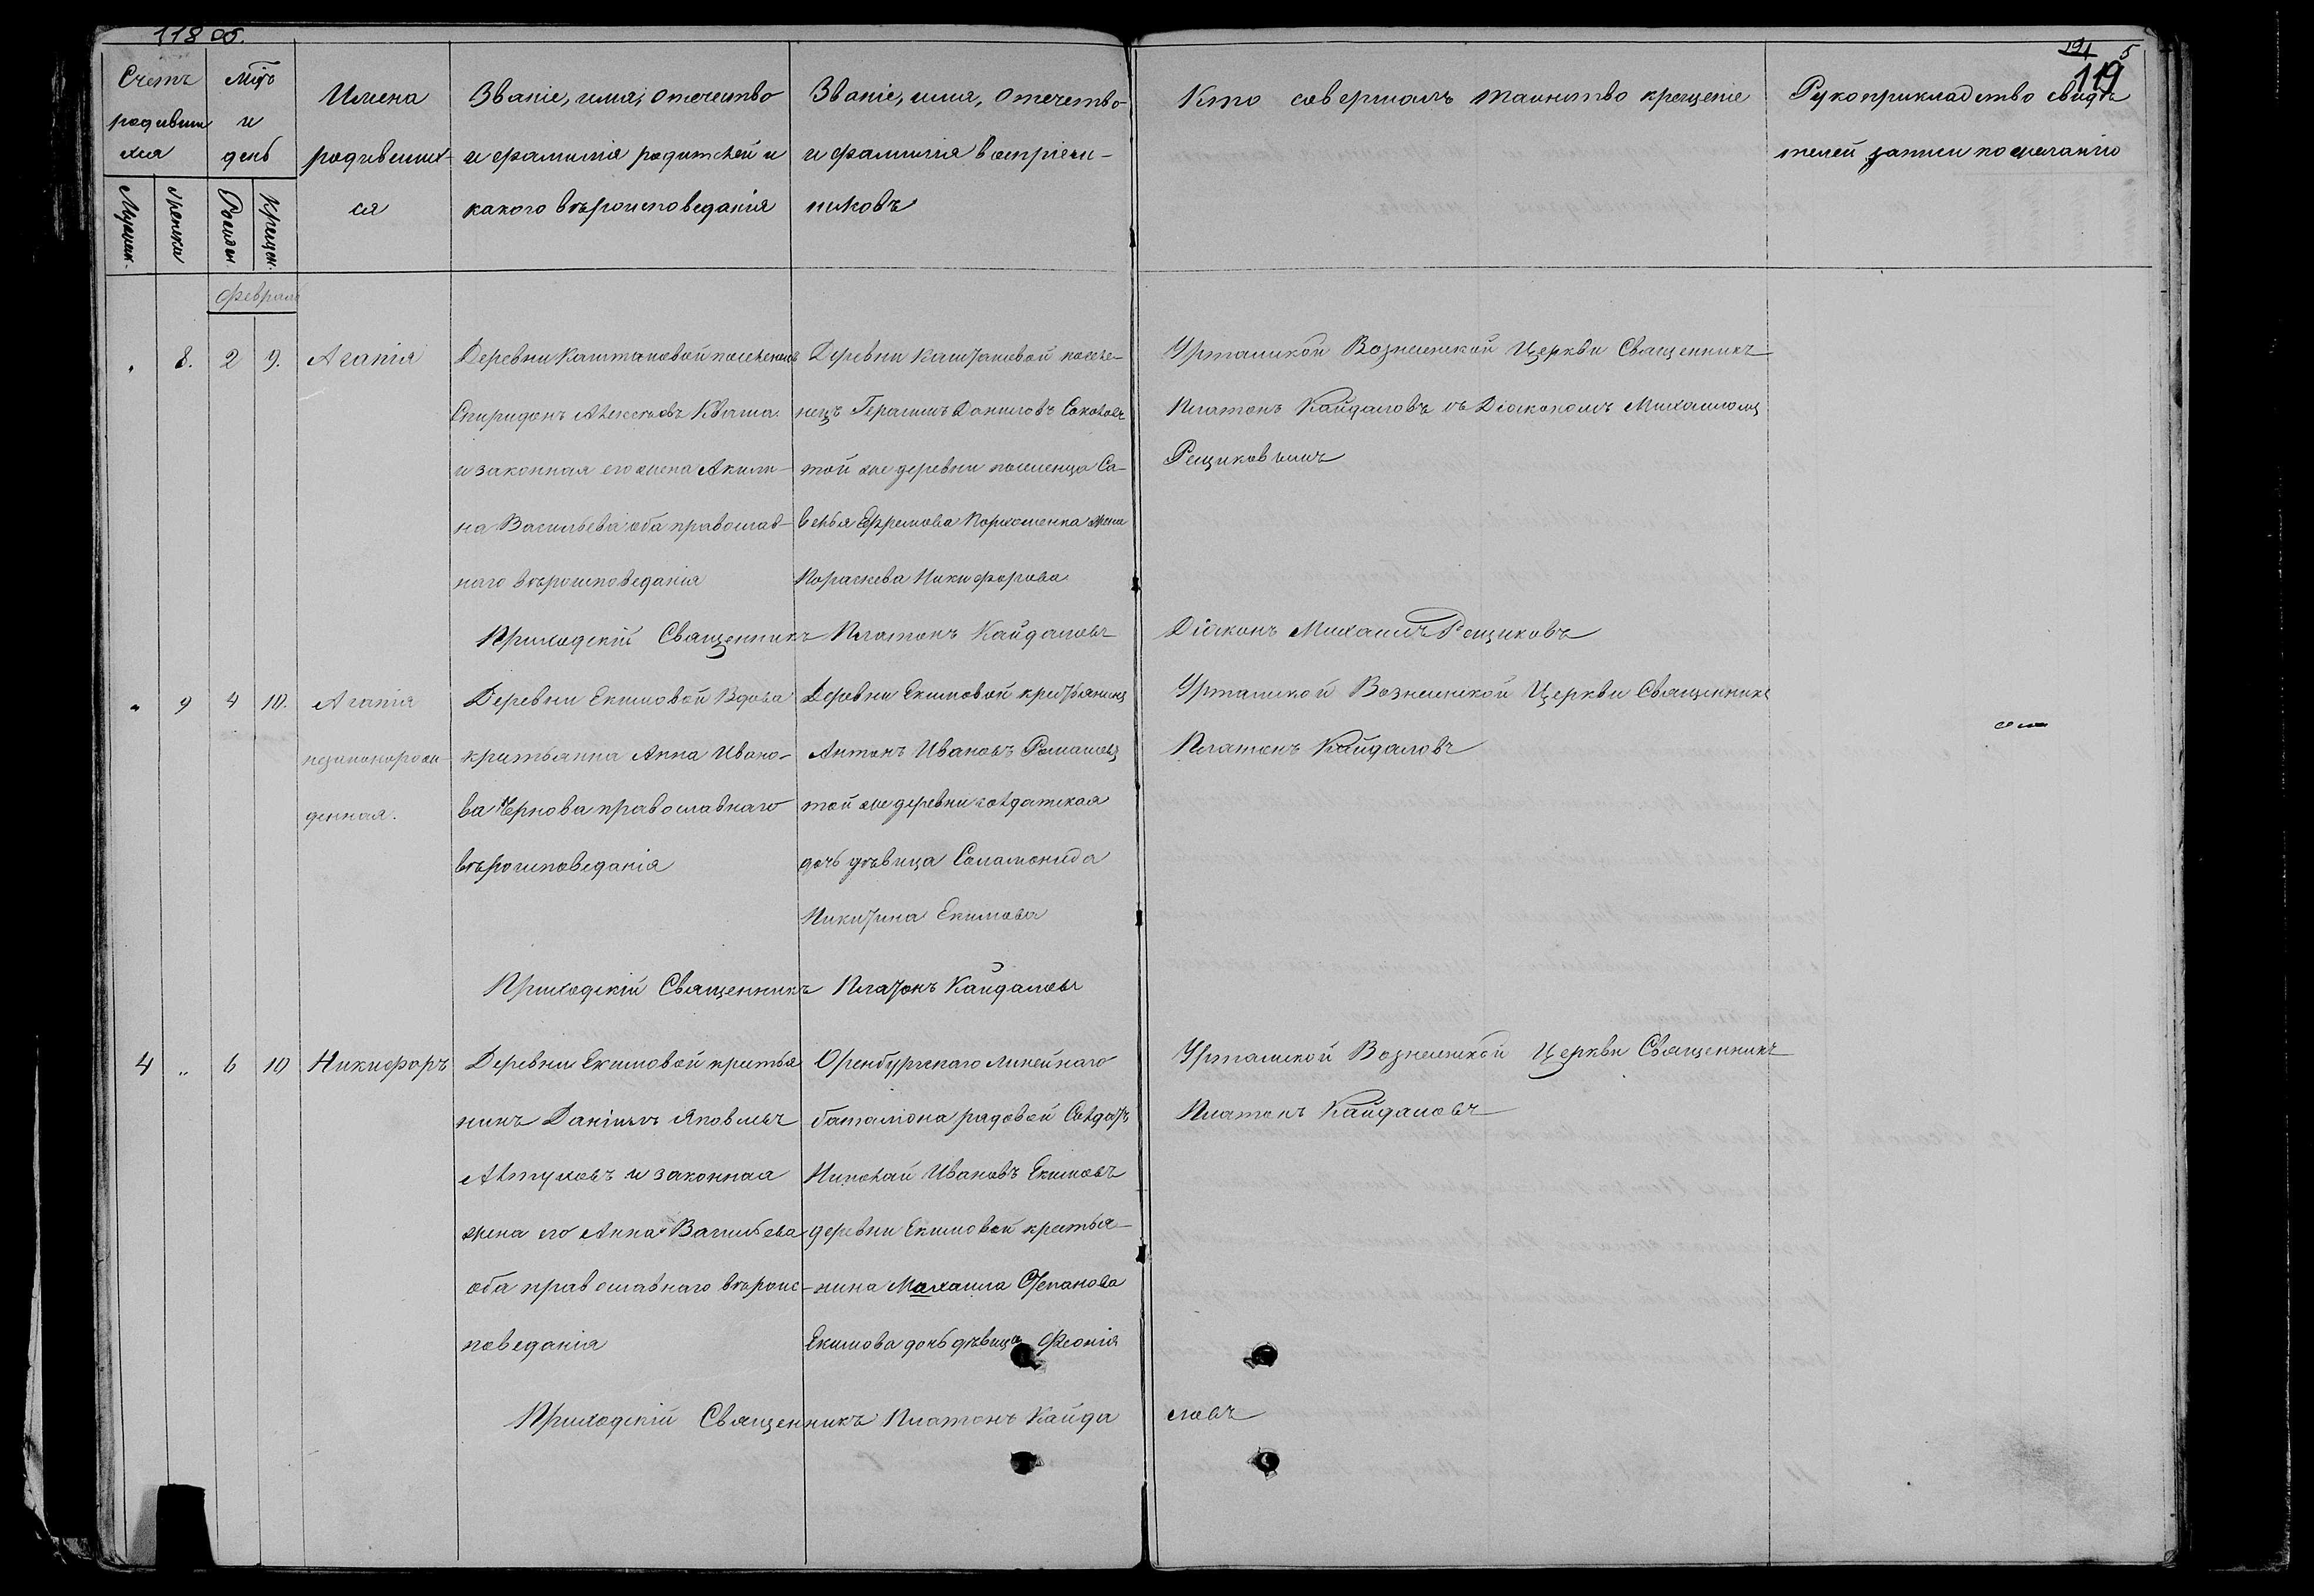 118 об.
119
5
Счетъ родивши хся
Мцъ и день
Имена родивших- ся
Званіе, имя, отечество и фамилія родителей и какого вѣроисповеданія
Званіе, имя, отечество и фамилія воспріем- никовъ
Кто совершалъ таинство крещеніе
Рукоприкладство свидѣ телей записи по желанію
Мужеск.
Женска
Рожден.
Крещен.
Февраль
8. 2 9. Агапія
Деревни Каштановой поселенецъ
Спиридонъ Алексѣевъ Кваша
и законная его жена Акили-
на Васильева оба православ-
наго вѣроисповеданія
Деревни Каштановой поселе-
нецъ Герасимъ Даниловъ Соколовъ
той же деревни поселенца Са-
велья Ефремова Порхоменка жена
Пораскева Никифорова
Урталиской Вознесенской Церкви Священникъ
Платонъ Кайдаловъ съ Діакономъ Михаиломъ
Рещиковымъ
Приходскій Священникъ Платонъ Кайдаловъ
Діаконъ Михаилъ Рещиковъ
9 4 10. Агапія
незаконорож-
денная.
Деревни Екимовой Вдова
крестьянка Анна Ивано-
ва Чернова православнаго
вѣроисповеданія
Деревни Екимовой крестьянинъ
Антонъ Ивановъ Ромашовъ
той же деревни солдатская
дочь дѣвица Соломонида
Никитина Екимова
Урталиской Вознесенской Церкви Священникъ
Платонъ Кайдаловъ
Приходскій Священникъ Платонъ Кайдаловъ
4 „ 6 10 Никифоръ
Деревни Екимовой крестья
нинъ Даніилъ Яковлевъ
Алтуховъ и законная
жена его Анна Васильева
оба православнаго вѣроис-
поведанія
Оренбургскаго линейнаго
баталіона рядовой Солдатъ
Николай Ивановъ Екимовъ
деревни Екимовой крестья-
нина Махаила Степанова
Екимова дочь дѣвица Феонія
Урталиской Вознесенской Церкви Священникъ
Платонъ Кайдаловъ
Приходскій Священникъ Платонъ Кайда ловъ